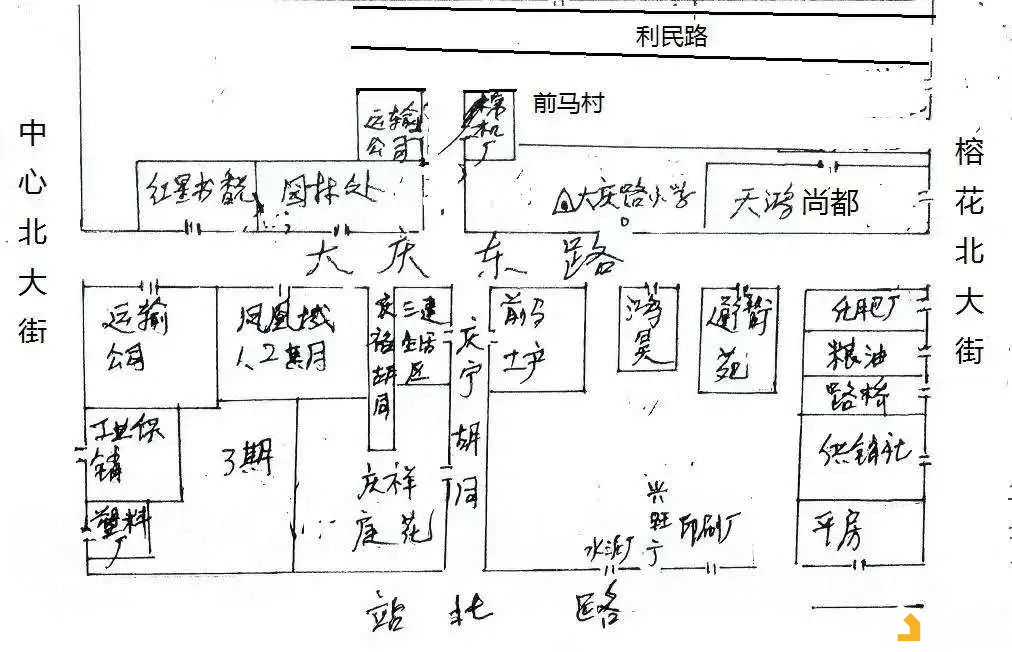 利民路
中心北大街
榕花北大街
前马村
运输
公司
棉机厂
红星书香苑
园林处
大庆路小学
天鸿尚都
大庆东路
运输
公司
凤凰城
1、2期
庆裕胡同
三建
生活
区
庆宁胡同
前马
土产
鸿昊
通衢
苑
化肥厂
粮油
路桥
供销社
平房
工业供
销
3期
塑料
厂
庆祥
庭花
水泥厂
兴旺
印刷厂
站北路